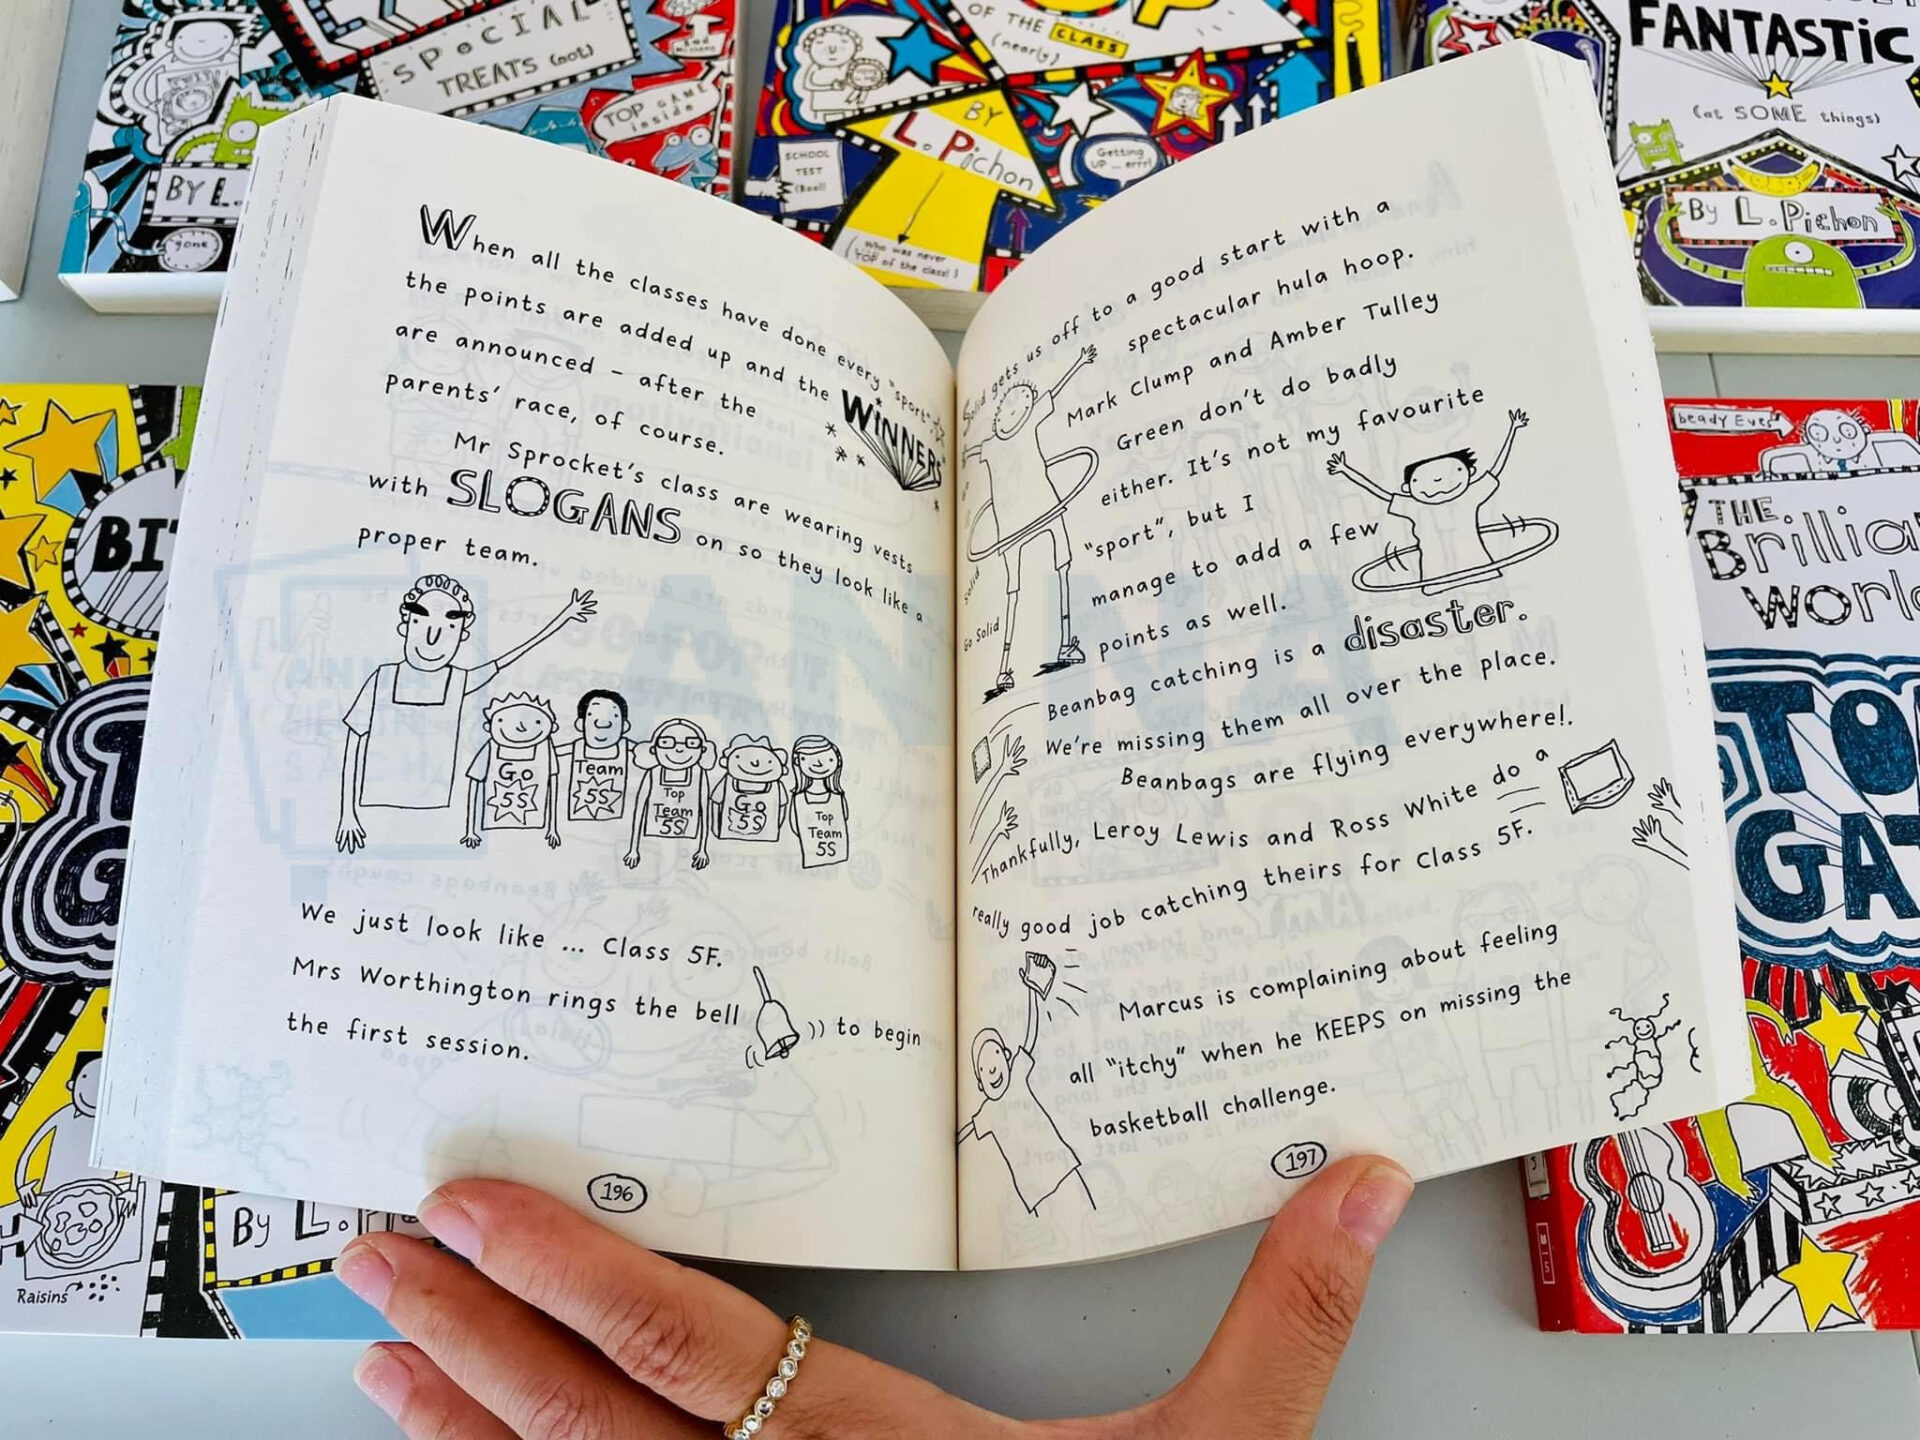 SPECIAL
TREATS (not)
TOP GAME
inside
BY L.
gone
OF THE CLASS
(nearly)
BY
L. Pichon
SCHOOL
TEST
(Boo!)
Getting
UP ... errr!
(who was never
TOP of the class!)
FANTASTIC
(at SOME things)
By L. Pichon
When all the classes have done every "sport"
the points are added up and the WINNERS
are announced – after the
parents' race, of course.
Mr Sprocket's class are wearing vests
with SLOGANS on so they look like a
proper team.
Go
5S
Team
5S
Top
Team
5S
Go
5S
Top
Team
5S
We just look like ... Class 5F.
Mrs Worthington rings the bell to begin
the first session.
196
Solid gets us off to a good start with a
spectacular hula hoop.
Mark Clump and Amber Tulley
Green don't do badly
either. It's not my favourite
"sport", but I
manage to add a few
points as well.
Solid
Go Solid
Beanbag catching is a disaster.
We're missing them all over the place.
Beanbags are flying everywhere!.
Thankfully, Leroy Lewis and Ross White do a
really good job catching theirs for Class 5F.
Marcus is complaining about feeling
all "itchy" when he KEEPS on missing the
basketball challenge.
197
beady Eyes
THE
Brillia
World
TO
GAT
By L.
Raisins